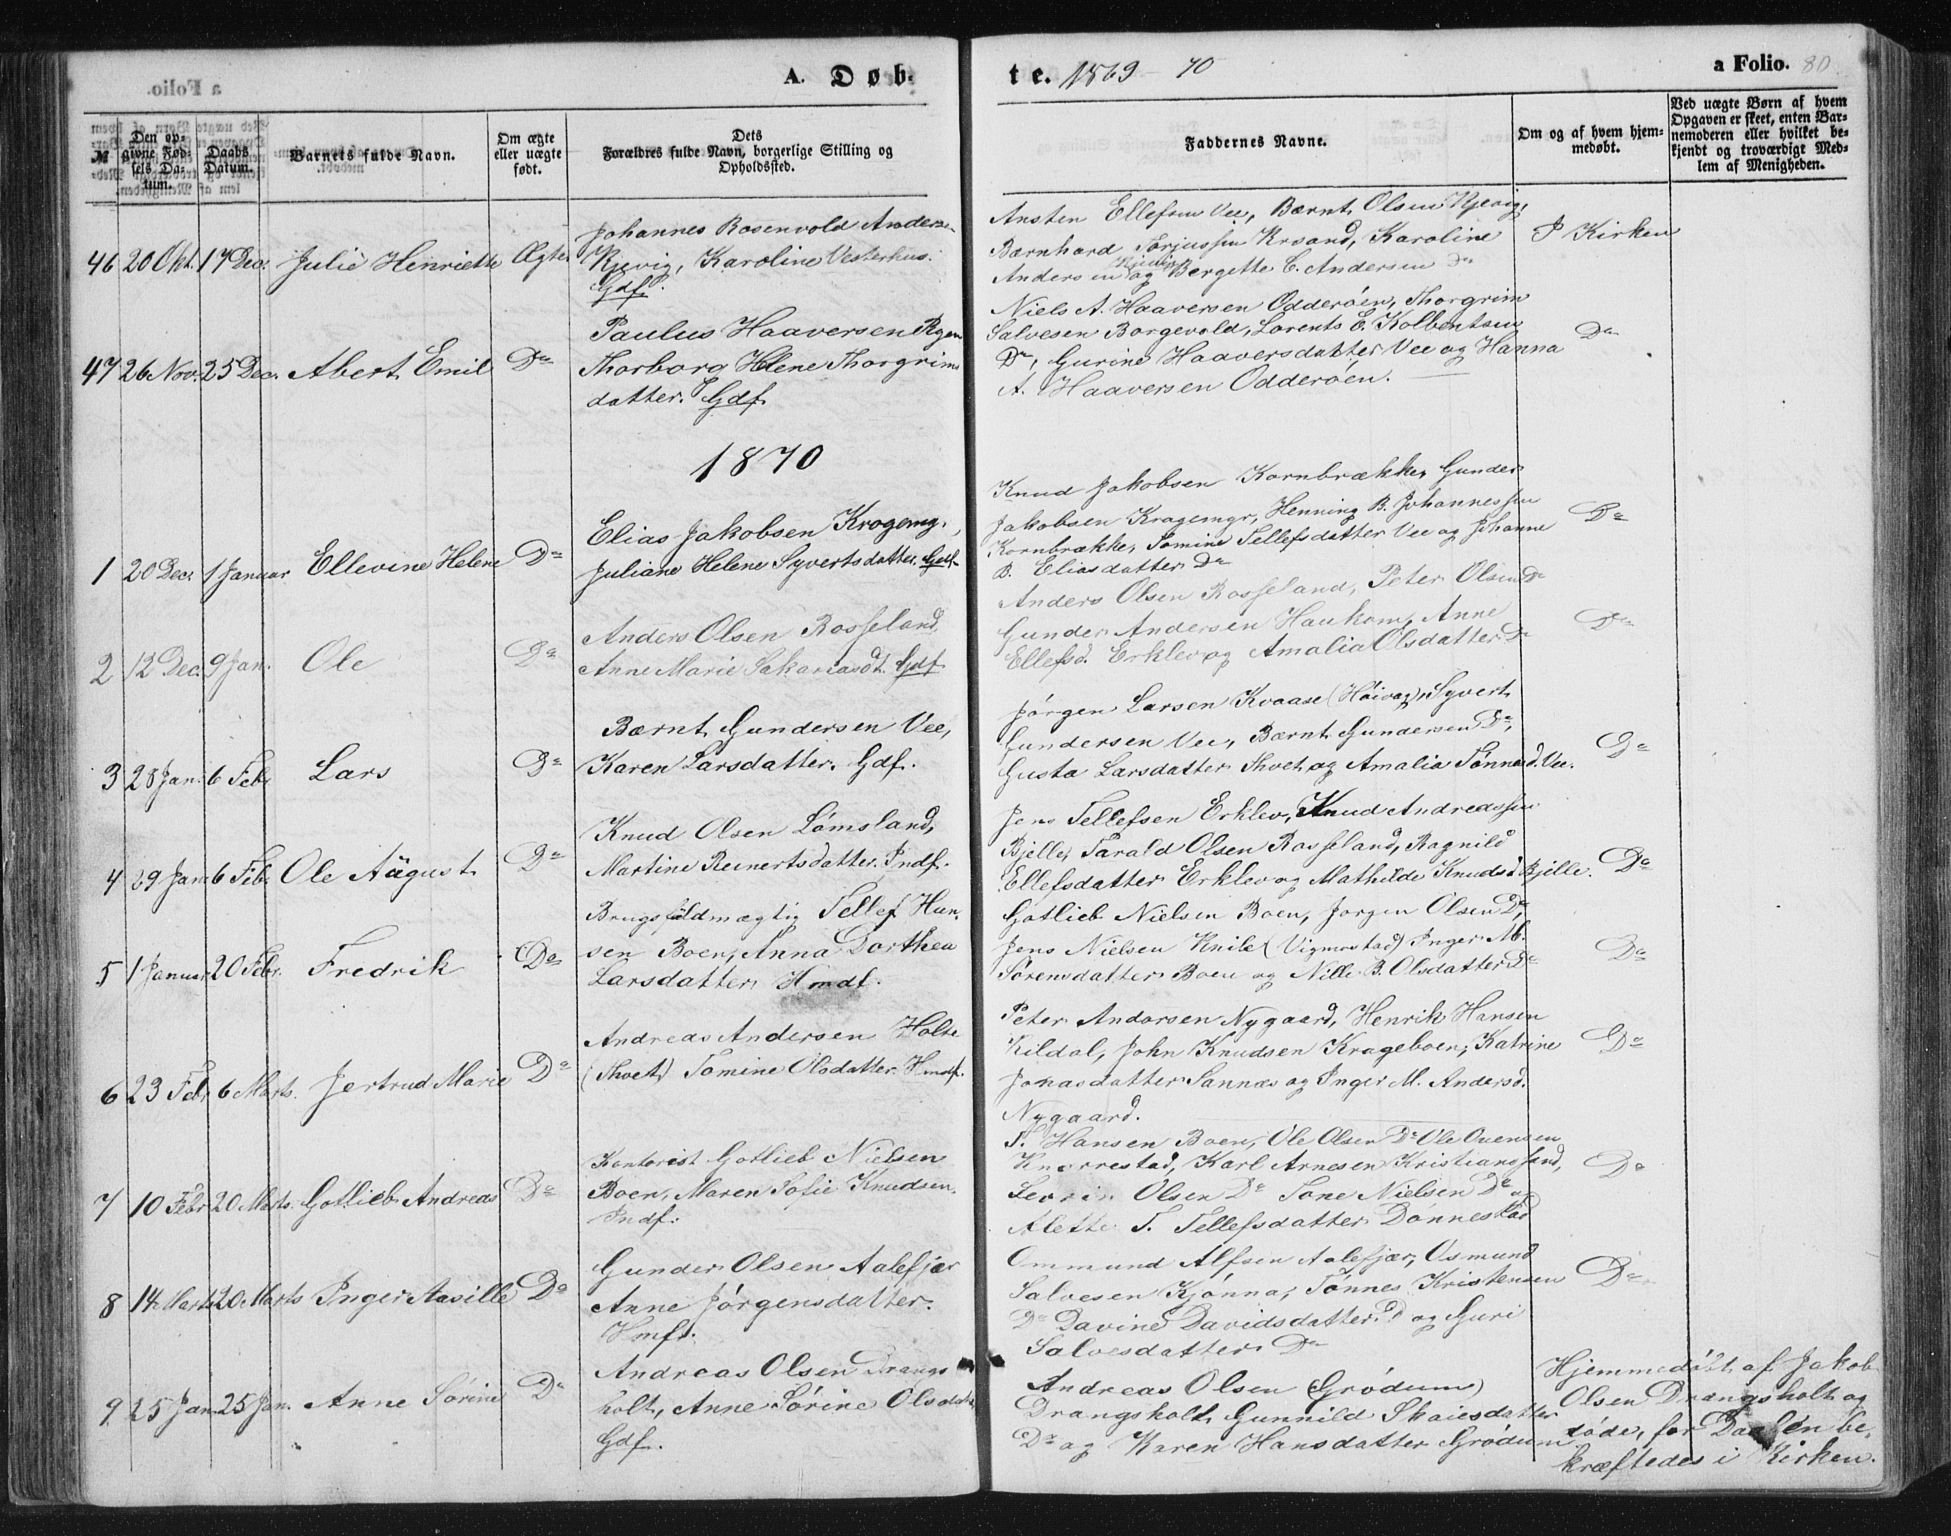 A. Døb-
te. 1869-70
a Folio. 80
№
Den op-
givne Fød-
sels Da-
tum.
Daabs
Datum.
Barnets fulde Navn.
Om ægte
eller uægte
født.
Dets
Forældres fulde Navn, borgerlige Stilling og
Opholdssted.
Faddernes Navne.
Om og af hvem hjem-
medøbt.
Ved uægte Børn af hvem
Opgaven er skeet, enten Bar-
nemoderen eller hvilket be-
kjendt og troværdigt Med-
lem af Menigheden.
46 20 Okt. 17 Dec. Julie Henriette Ægte
Johannes Rosenvold Anderse-
Kjevig, Karoline Vesterhus.
Gdf.
Ansten Ellefsen Vee, Bærnt Olsen Kjevig,
Bærnhard Torjussen Krsand, Karoline
Andersen Kjevig og Bergette C. Andersen Do
I Kirken
47 26 Nov. 25 Dec. Abert Emil Do
Paulus Haaversen Ryen
Thorborg Helene Thorgrims
datter. Gdf.
Niels A. Haaversen Odderøen, Thorgrim
Salvesen Borgevold, Lorents E. Kolbentsen
Do, Gurine Haaversdatter Vee og Hanna
A. Haaversen Odderøen.
Do
1870
1 20 Dec. 1 Januar Ellevine Helene Do
Elias Jakobsen Kragemy.,
Juliane Helene Syvertsdatter. Gdf.
Knud Jakobsen Kornbrække, Gunder
Jakobsen Kragemyr, Henning B. Johannessen
Kornbrække, Tomine Tellefsdatter Vee og Johanne
B. Eliasdatter Do
Do
2 12 Dec. 9 Jan. Ole Do
Anders Olsen Rosseland,
Anne Marie Sakariasdt. Gdf.
Anders Olsen Rosseland, Peter Olsen Do
Gunder Andersen Haukom, Anne
Ellefsd. Erklev og Amalia Olsdatter Do
Do
3 28 Jan. 6 Feb. Lars Do
Bærnt Gundersen Vee,
Karen Larsdatter. Gdf.
Jørgen Larsen Kvaase (Høivag), Syvert
Gundersen Vee, Bærnt Gundersen Do,
Gusta Larsdatter Thvet og Amalia Tønnesd. Vee.
Do
4 29 Jan. 6 Feb. Ole August Do
Knud Olsen Lømsland,
Martine Reinertsdatter. Indf.
Jens Tellefsen Erklev, Knud Andreassen
Bjelle, Tarald Olsen Rosseland, Ragnild
Ellefsdatter Erklev og Mathilde Knudsd. Bjelle.
Do
5 1 Januar 20 Febr. Fredrik Do
Brugsfuldmægtig Tellef Han-
sen Boen, Anna Dorthea
Larsdatter. Hmdf.
Gotlieb Nielsen Boen, Jørgen Olsen Do,
Jens Nielsen Knibe (Vigmostad) Inger M.
Sørensdatter Boen og Nille B. Olsdatter Do
Do
6 23 Feb. 6 Marts. Jertrud Marie Do
Andreas Andersen Holte
(Thvet) Tomine Olsdatter. Hmdf.
Peter Andersen Nygaard, Henrik Hansen
Kildal, John Knudsen Krageboen, Katrine
Jonasdatter Sannæs og Inger M. Andersd.
Nygaard.
Do
7 10 Febr. 20 Marts. Gotlieb Andreas Do
Kontorist Gotlieb Nielsen
Boen, Maren Sofie Knudsen.
Indf.
T. Hansen Boen, Ole Olsen Do Ole Ovensen
Knarrestad, Karl Arnesen Kristianssand,
Severin Olsen Do Tone Nielsen Do og
Alette T. Tellefsdatter Dønnestad
Do
8 14 Marts 20 Marts Inger Aasille Do
Gunder Olsen Aalefjær
Anne Jørgensdatter.
Hmf.
Ommund Alfsen Aalefjær, Osmund
Salvesen Kjønna, Tønnes Kristensen
Do Davine Davidsdatter Do og Guri
Salvesdatter Do
Do
9 25 Jan. 25 Jan. Anne Sørine Do
Andreas Olsen Drangs
holt, Anne Sørine Olsdatter
Gdf.
Andreas Olsen (Grødum)
Drangsholt Gunnild Skaiesdatter
Do og Karen Hansdatter Grødum
Hjemmedøbt af Jakob
Olsen Drangsholt og
døde, før Daaben be-
kræftedes i Kirken.